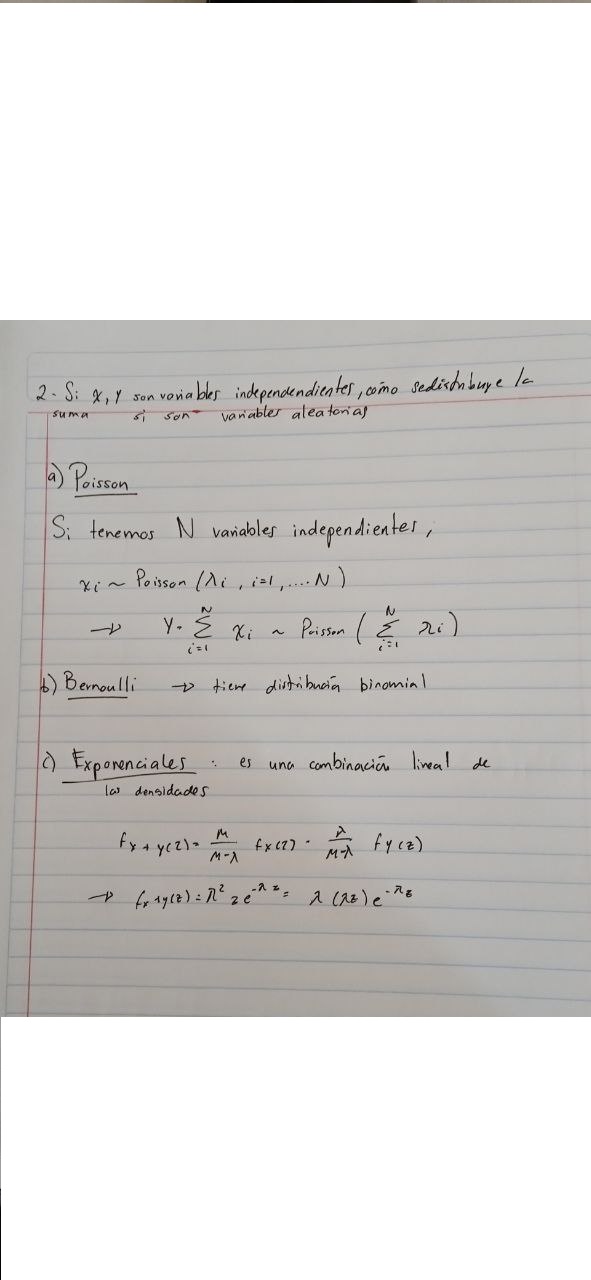 2.- Si x, y son variables independendientes, cómo sedistribuye la
suma si son variables aleatorias
a) Poisson
Si tenemos N variables independientes,
xi ~ Poisson (λi, i=1, .... N)
→ Y = Σ_{i=1}^{N} xi ~ Poisson ( Σ_{i=1}^{N} λi )
b) Bernoulli → tiene distribución binomial
c) Exponenciales : es una combinación lineal de
las densidades
fx+y(z) = M/(M-λ) fx(z) - λ/(M-λ) fy(z)
→ fx+y(z) = λ² z e^{-λz} = λ (λz) e^{-λz}